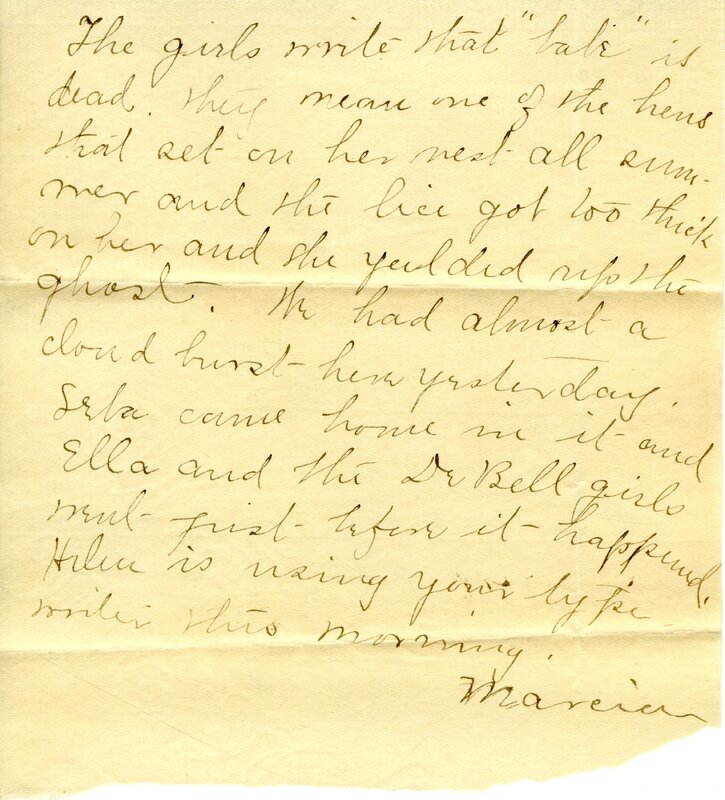 The girls write that "babe" is
dead. they mean one of the hens
that set on her nest all sum-
mer and the lice got too thick
on her and she yeilded up the
ghost. We had almost a
cloud burst here yesterday.
Seba came home in it and
Ella and the DeBell girls
went just before it happened.
Helen is using your type
writer this morning.
Marcia